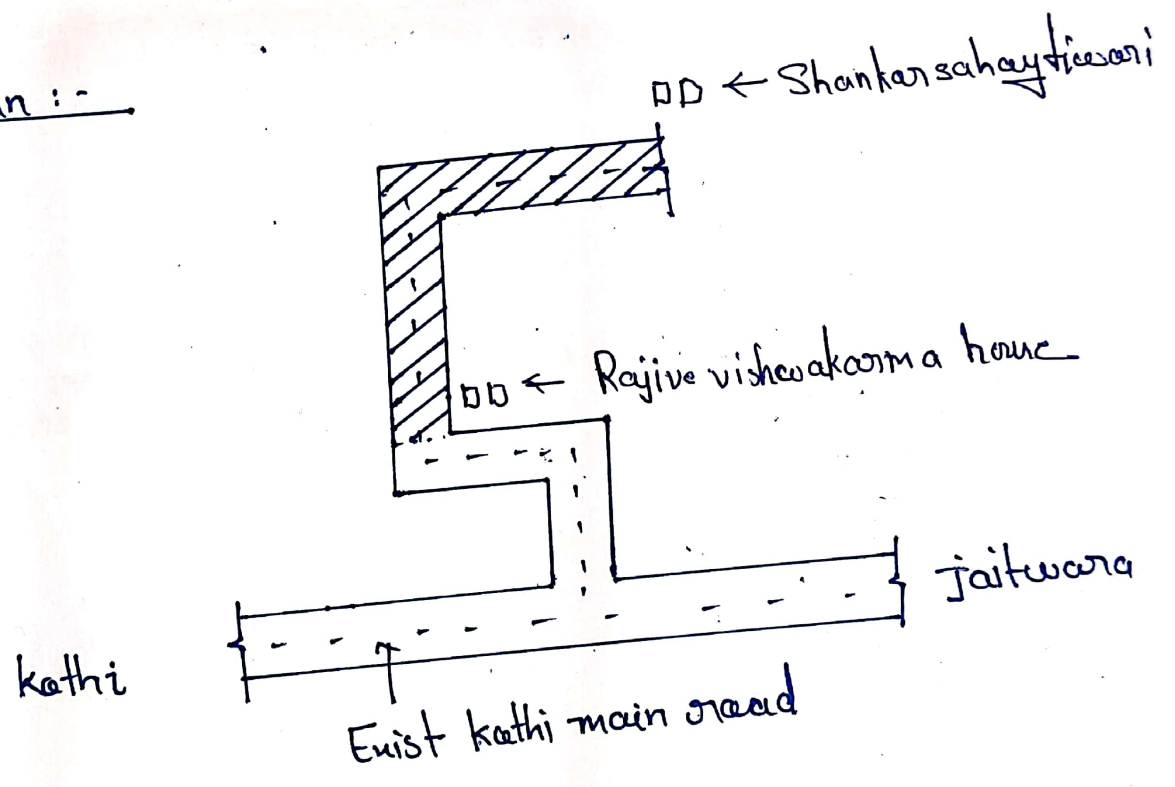 n :-
← Shankarsahaytiwari
← Rajive vishwakarma house
jaitwara
kothi
Exist kothi main road